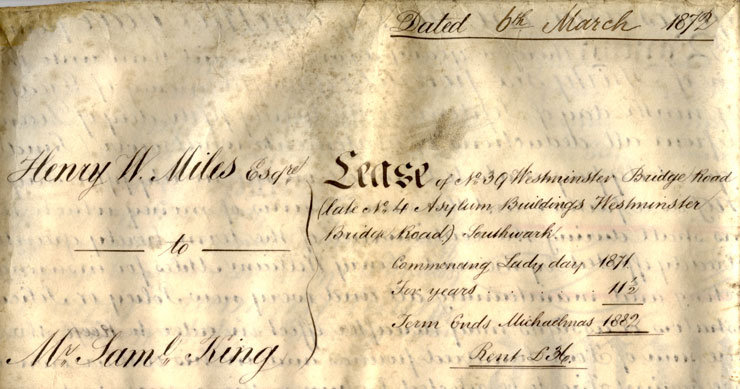 Dated 6th March 1872
Henry W. Miles Esqre
to
Mr. Saml. King
Lease of No. 39 Westminster Bridge Road
(late No. 4 Asylum Buildings Westminster
Bridge Road) Southwark.
Commencing Lady day 1871
For years . . . 11½
Term Ends Michaelmas 1882
Rent £36.